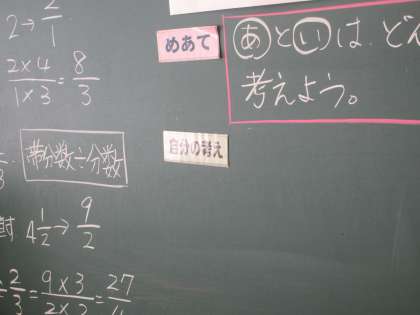 2→2/1
2×4/1×3=8/3
帯分数÷分数
4 1/2→9/2
÷2/3=9×3/2×2=27/4
めあて
あといは、どん
考えよう。
自分の考え